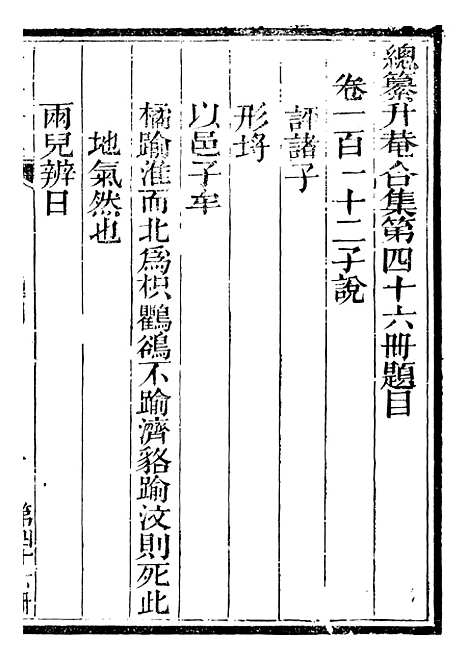 總纂升菴合集第四十六冊題目
卷一百一十二子說
評諸子
形埒
以邑子车
橘踰淮而北爲枳鸜鵒不踰濟貉踰汶則死此
地氣然也
兩兒辨日
第四十六冊